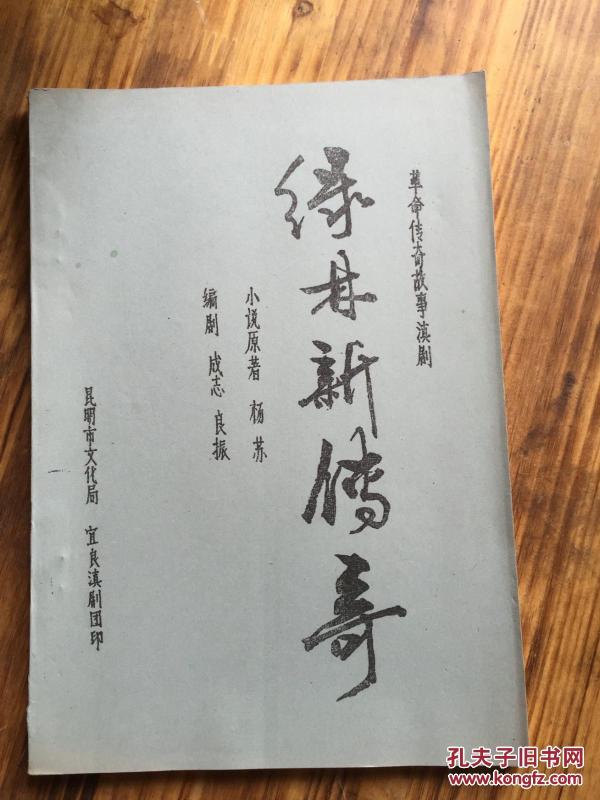 革命传奇故事滇剧
绿林新传奇
小说原著 杨苏
编剧 成志 良振
昆明市文化局 宜良滇剧团印
孔夫子旧书网
www.kongfz.com